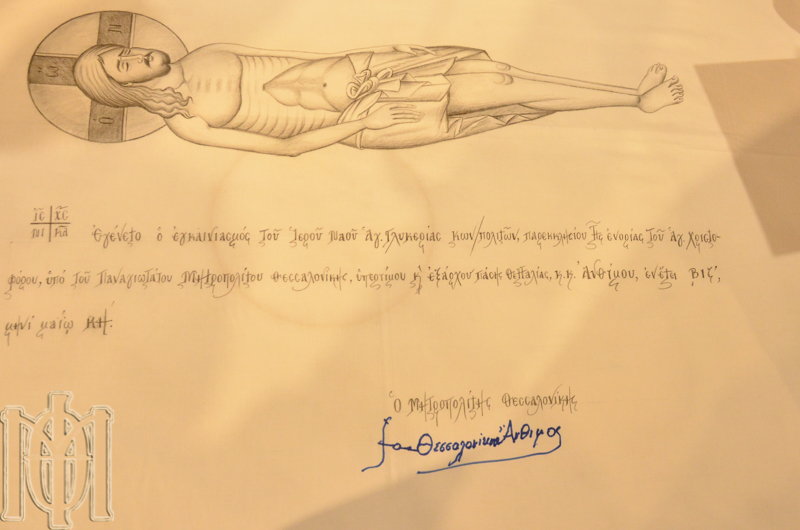 Ὁ Ὤ Ν
ΙϹ ΧϹ
ΝΙ ΚΑ
Ἐγένετο ὁ ἐγκαινιασμός τοῦ Ἱεροῦ Ναοῦ Ἁγ. Γλυκερίας Κων/πολιτῶν, παρεκκλησίου τῆς ἐνορίας τοῦ Ἁγ. Χριστο-
φόρου, ὑπό τοῦ Παναγιωτάτου Μητροπολίτου Θεσσαλονίκης, ὑπερτίμου κ ἐξάρχου πάσης Θετταλίας, κ.κ. Ἀνθίμου, ἐν ἔτει ͵βιζ΄,
μηνί μαΐῳ ΚΗ΄.
Ὁ Μητροπολίτης Θεσσαλονίκης
Θεσσαλονίκης Ἄνθιμος